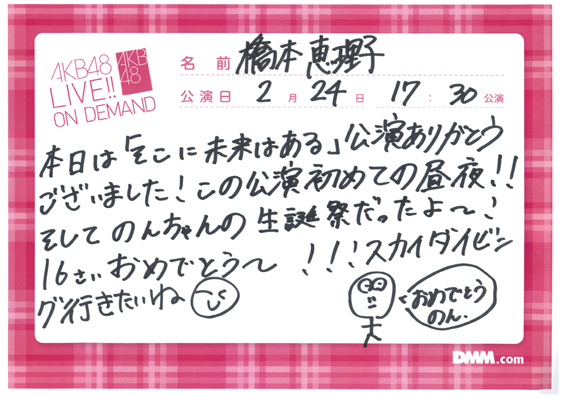 AKB48
LIVE!!
ON DEMAND
AKB
48
名前 橋本恵理子
公演日 2月24日 17:30公演
本日は「そこに未来はある」公演ありがとう
ございました!この公演初めての昼夜!!
そしてのんちゃんの生誕祭だったよ〜!
16さいおめでとう〜 !!!スカイダイビン
グ行きたいね
おめでとう
のん.
DMM.com